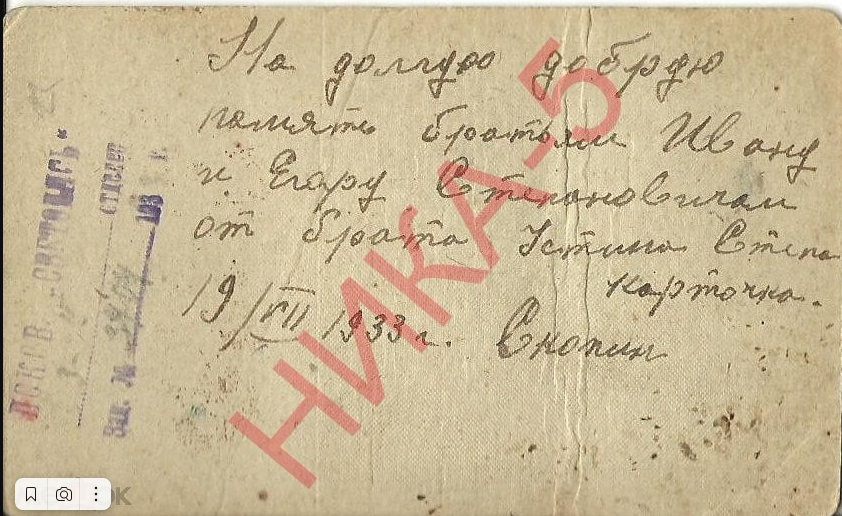 На долгую добрую
память братьям Ивану
и Егору Степановичам
от брата Устина Степа
карточка.
19/VII 1933 г. Скопин
НИКА-5
ПСКОВ „СВЕТОПИСЬ“
отделен
193 г.
Зак. №